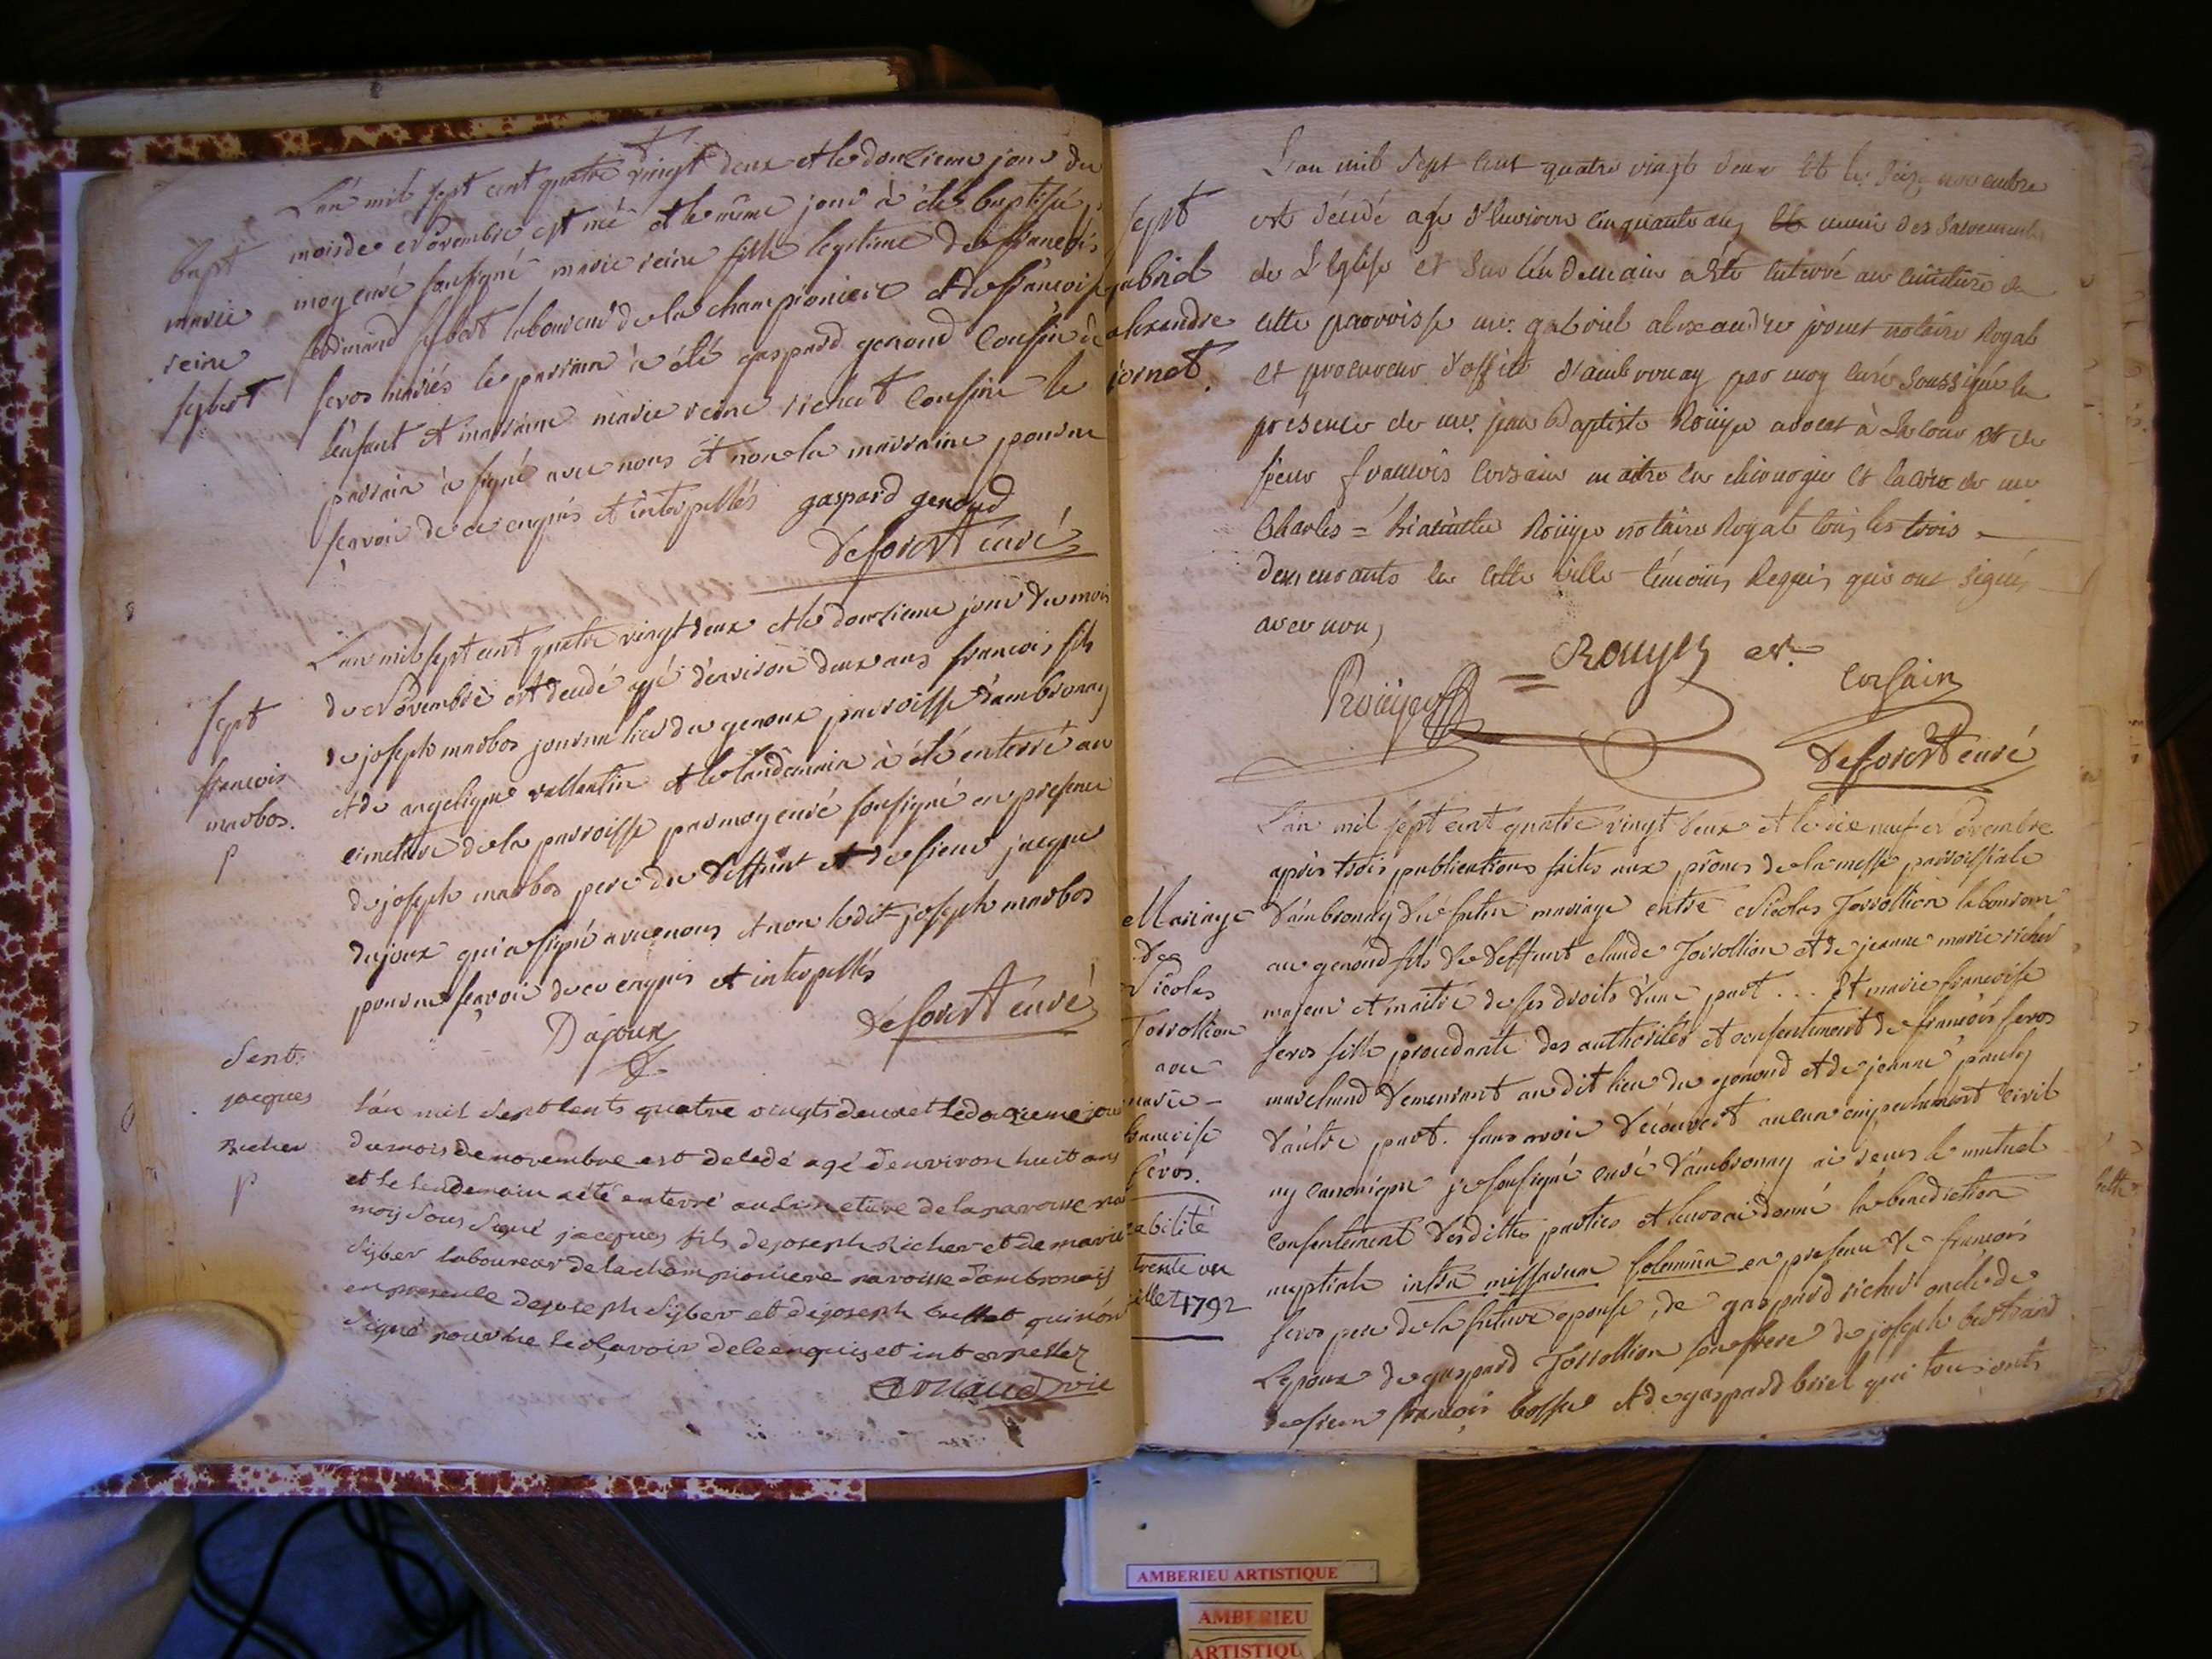 L'an mil sept cent quatre vingt deux et le douzieme jour du
bapt
marie
reine
sybert
mois de novembre est né et le même jour à été baptisé par
moy curé sousigné marie reine fille legitime de françois
sybert laboureur de la championiere et de françoise
feros mariés le parrain à été gaspard genoud cousin de
l'enfant et marraine marie reine richet cousine le
parrain à signé avec nous et non la marraine pour ne
sçavoir de ce enquis et interpellés gaspard genoud
deforest curé
L'an mil sept cent quatre vingt deux et le douzieme jour du mois
sept
francois
marbos.
p
de novembre est decédé agé d'environ deux ans françois fils
de joseph marbos journalier du genoux parroisse d'ambronay
et de angelique vallantin et le landemain à été enterré au
cimetiere de la parroisse par moy curé sousigné en presence
de joseph marbos pere du deffunt et de sieur jacque
dujoux qui a signé avec nous et non ledit joseph marbos
pour ne sçavoir de ce enquis et interpellés
Dujoux deforest curé
Sept.
jacques
Richer
p
L'an mil sept cents quatre vingts deux et le douzieme jour
du mois de novembre est decedé agé d'environ huit ans
et le lendemain a été enterré au cimetiere de la paroisse par
moy sous signé jacques fils de joseph Richer et de marie
Sybert laboureur de la championiere paroisse d'ambronay
en presence de joseph Sybert et de joseph buffet qui n'ont
signé pour ne le sçavoir de ce enquis et interpellez
vic
L'an mil sept cent quatre vingt deux et le seize novembre
sept
gabriel
alexandre
jornet.
est décédé agé d'environ cinquante ans et muni des sacrements
de L'Eglise et son lendemain a été enterré au cimetiere de
cette parroisse mr. gabriel alexandre jornet notaire Royal
et procureur d'office d'ambronay par moy curé soussigné en
présence de mr. jean Baptiste Roüyer avocat à la cour et de
sieur françois corsain maitre en chirurgie et encore de mr
Charles = hiacinthe Roüyer notaire Royal tous les trois
demeurants en cette ville témoins Requis qui ont signé
avec nous
Roüyer Rouyer avt. Corsain
deforest curé
L'an mil sept cent quatre vingt deux et le dix neuf novembre
après trois publications faites aux prônes de la messe parroissiale
Mariage
de
Nicolas
Jorrollion
avec
marie
francoise
féros.
d'ambronay du futur mariage entre Nicolas Jorrollion laboureur
au genoud fils de deffunt claude Jorrollion et de jeanne marie richer
majeur et maitre de ses droits d'une part ... et marie françoise
feros fille procedante des authorités et consentement de françois feros
marchand demeurant au dit lieu du genoud et de jeanne pauly
d'autre part. sans avoir découvert aucun empechement civil
ny canonique je sousigné curé d'ambronay ai reçus le mutuel
consentement desdittes parties et leur ai donné la benediction
nuptiale intra missarum solemnia en presence de françois
feros pere de la future epouse, de gaspard richer oncle de
L'epoux de gaspard Jorrollion son frere de joseph bertrand
de sieur françois bossu et de gaspard briet qui tous sont
trente un
1792
AMBERIEU ARTISTIQUE
AMBERIEU
ARTISTIQU